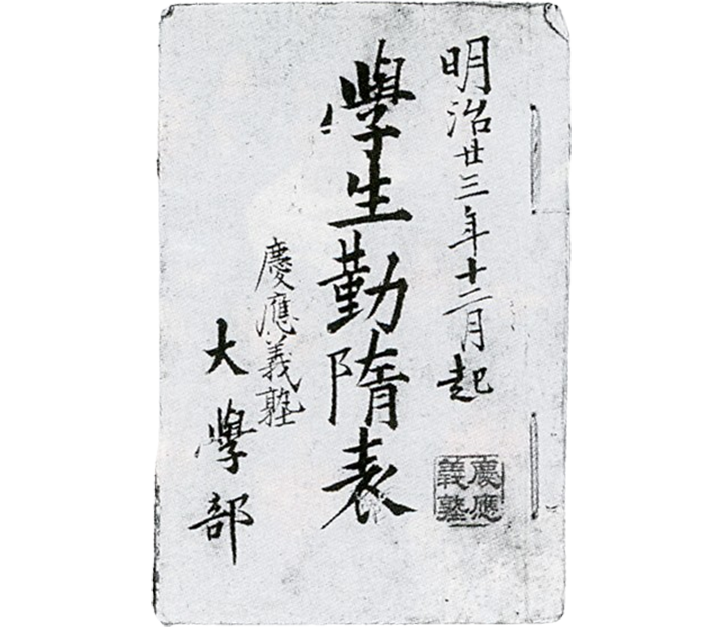 明治廿三年十二月起
慶應
義塾
學生勤隋表
慶應義塾
大學部